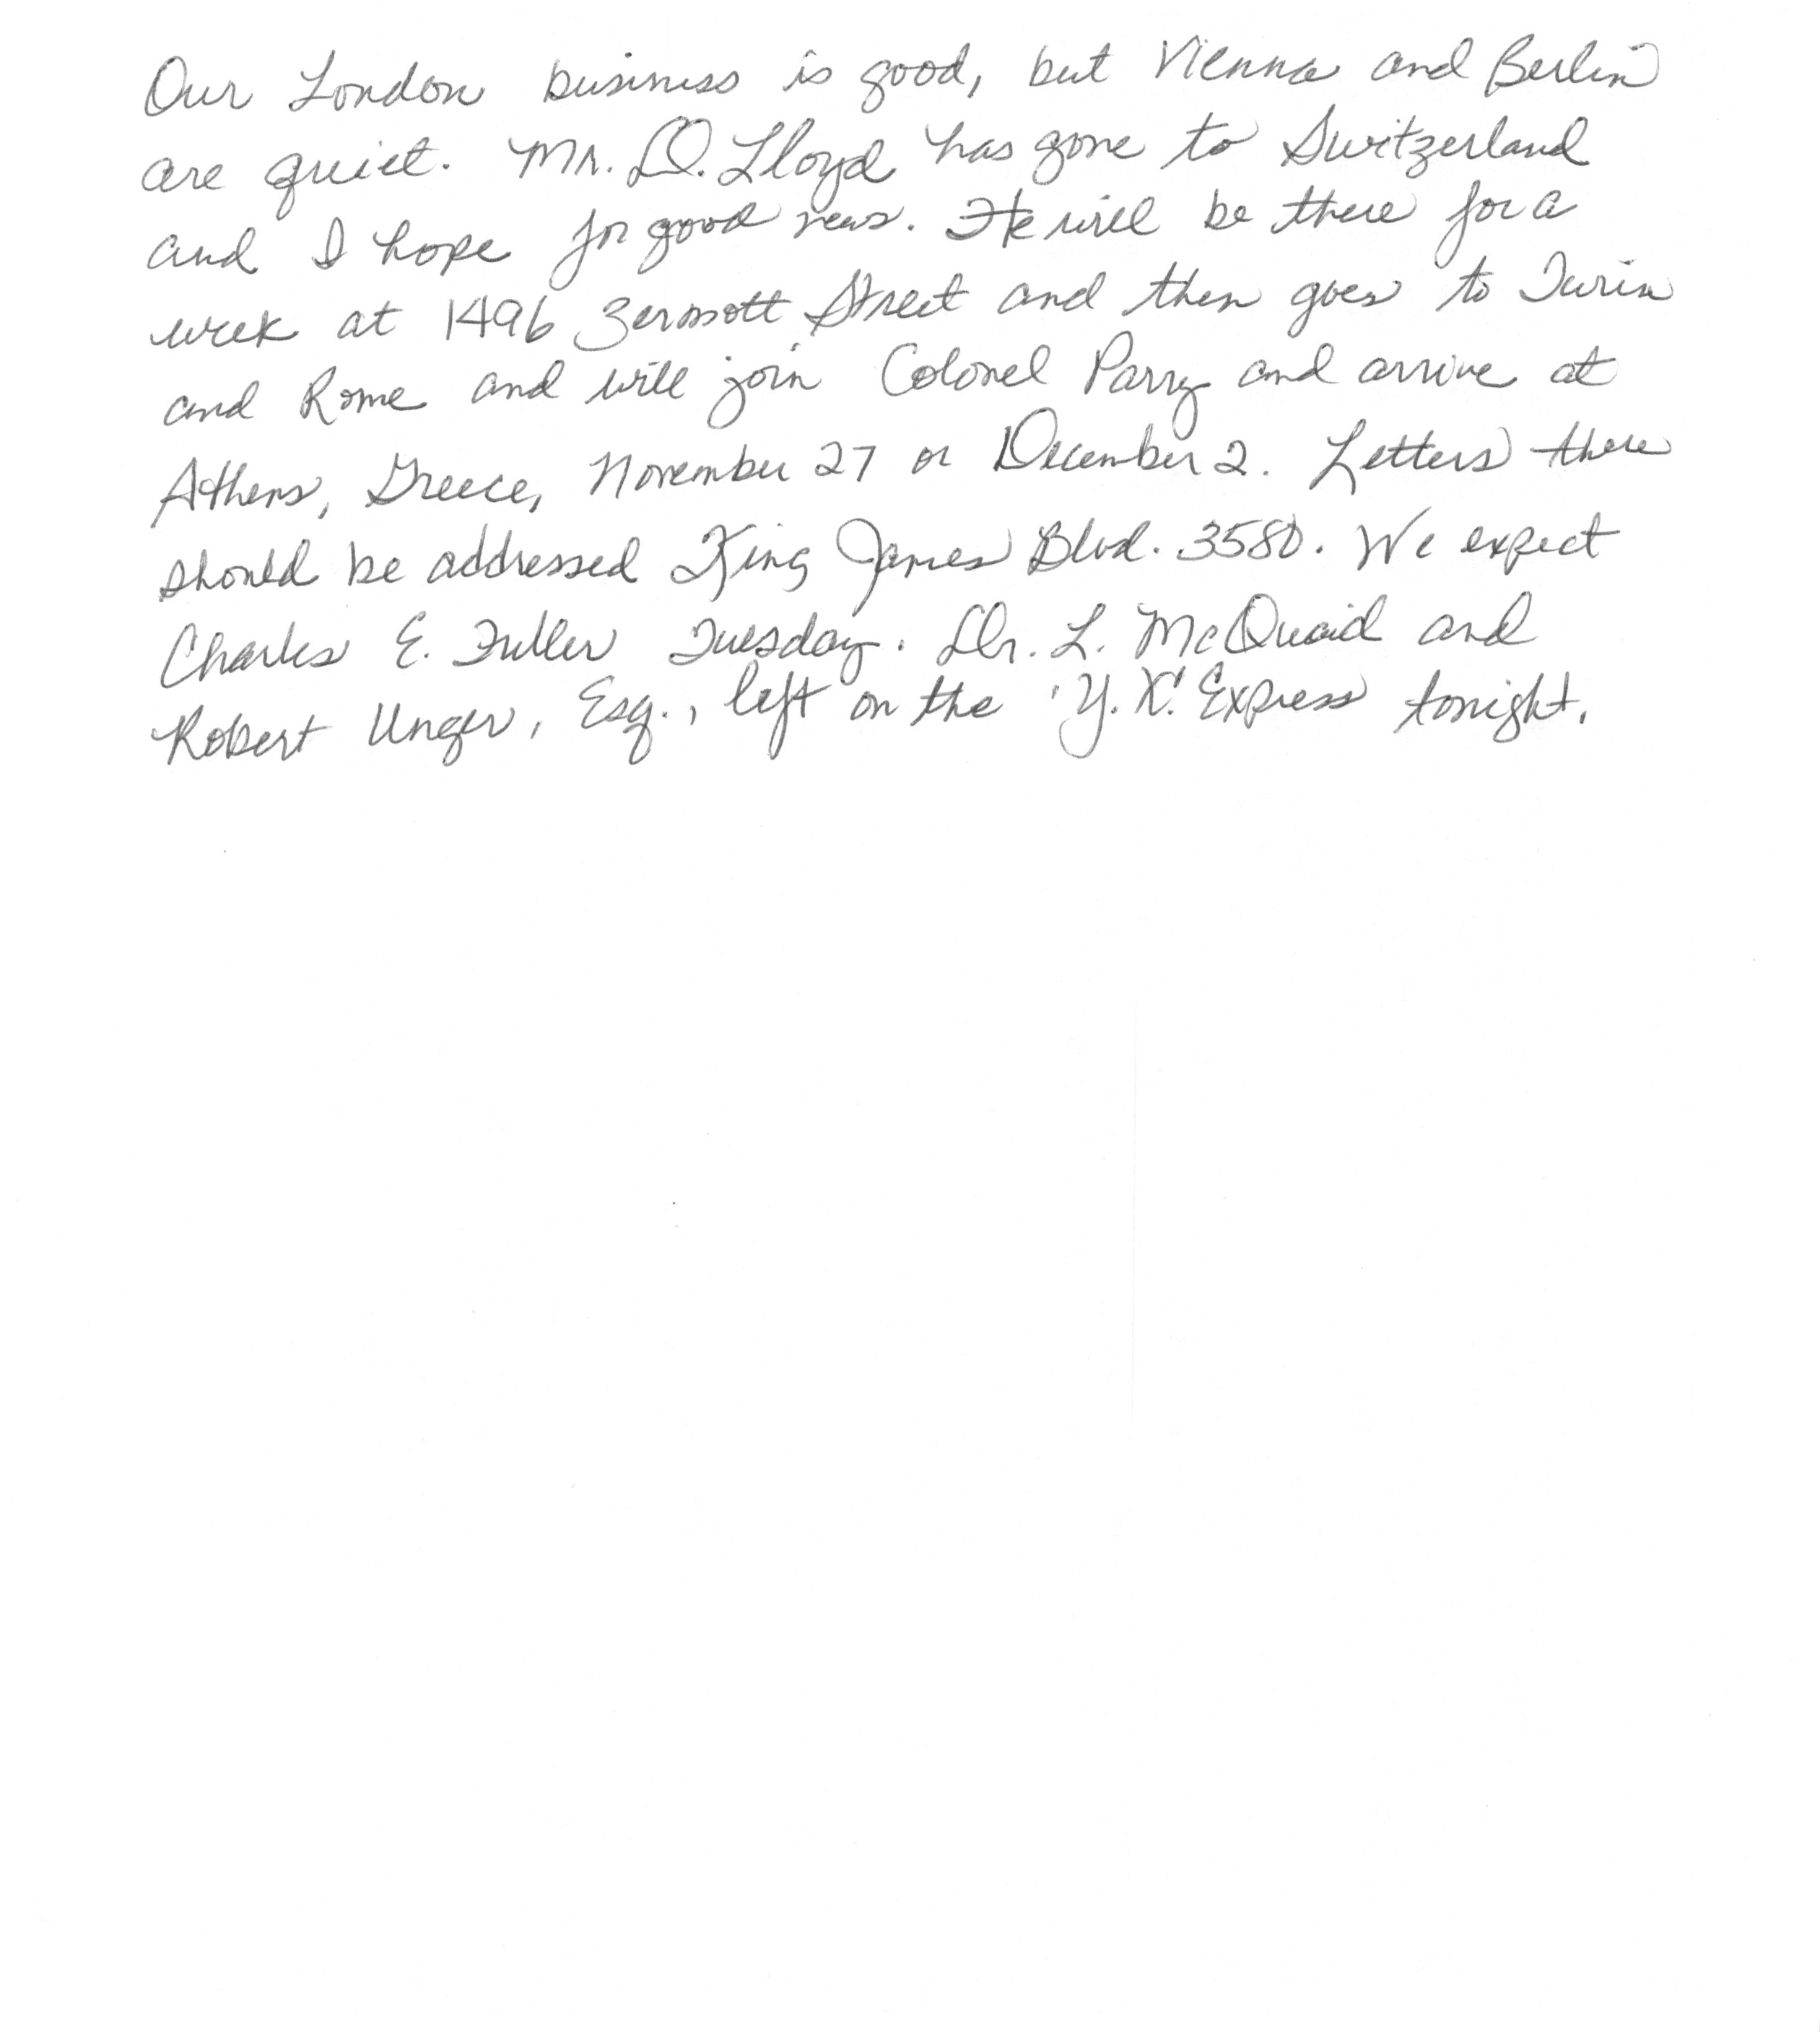 Our London business is good, but Vienna and Berlin
are quiet. Mr. D. Lloyd has gone to Switzerland
and I hope for good news. He will be there for a
week at 1496 Zermott Street and then goes to Turin
and Rome and will join Colonel Parry and arrive at
Athens, Greece, November 27 or December 2. Letters there
should be addressed King James Blvd. 3580. We expect
Charles E. Fuller Tuesday. Dr. L. McQuaid and
Robert Unger, Esq., left on the 'Y.X.' Express tonight.